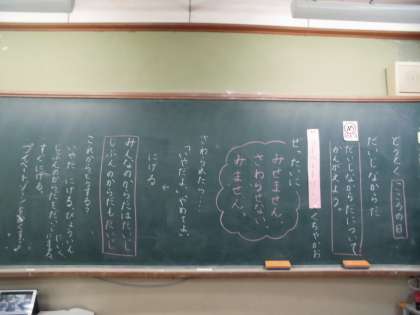 どうとく こころの日
だいじなからだ
め
だいじなからだについて
かんがえよう。
くちやかお
ぜったいに
みせません。
さわらせない。
みません。
さわられたら…
「いやだよ、やめてよ」
にげる
みんなのからだはだいじ
じぶんのからだもだいじ
これからどうする?
いやだ にげる。
じぶんのからだをだいじにする。
すぐにげる。
プライベートゾーン